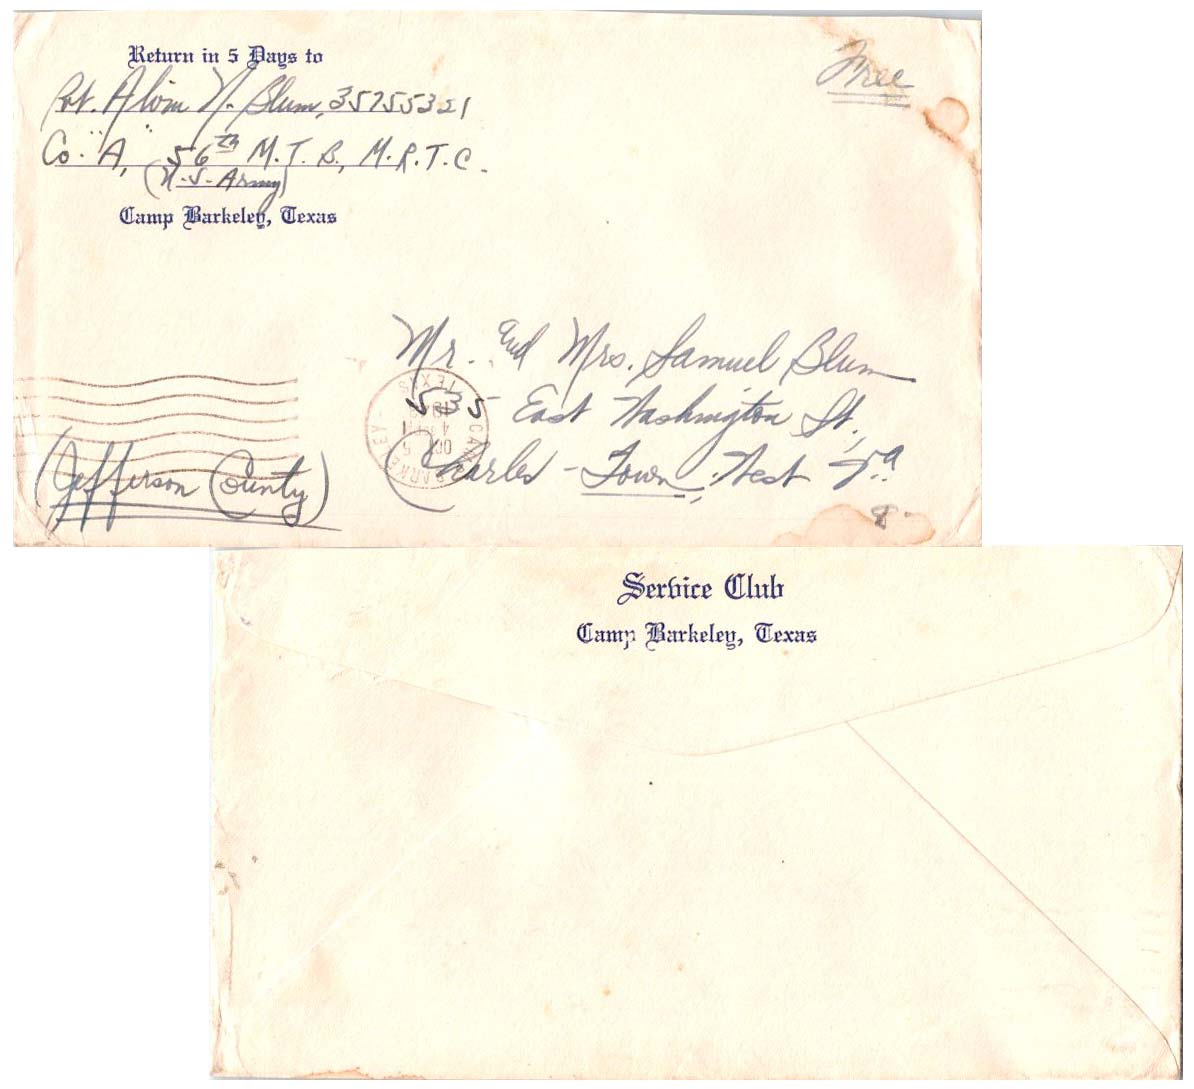 Return in 5 Days to
Pvt. Alvin N. Blum, 35755321
Co. "A", 56th M.T.B., M.R.T.C.
(U.S. Army)
Camp Barkeley, Texas
Free
Mr. and Mrs. Samuel Blum
East Washington St.
Charles-Town, West Va
(Jefferson County)
CAMP BARKELEY - TEXAS
OCT 5
8
Service Club
Camp Barkeley, Texas